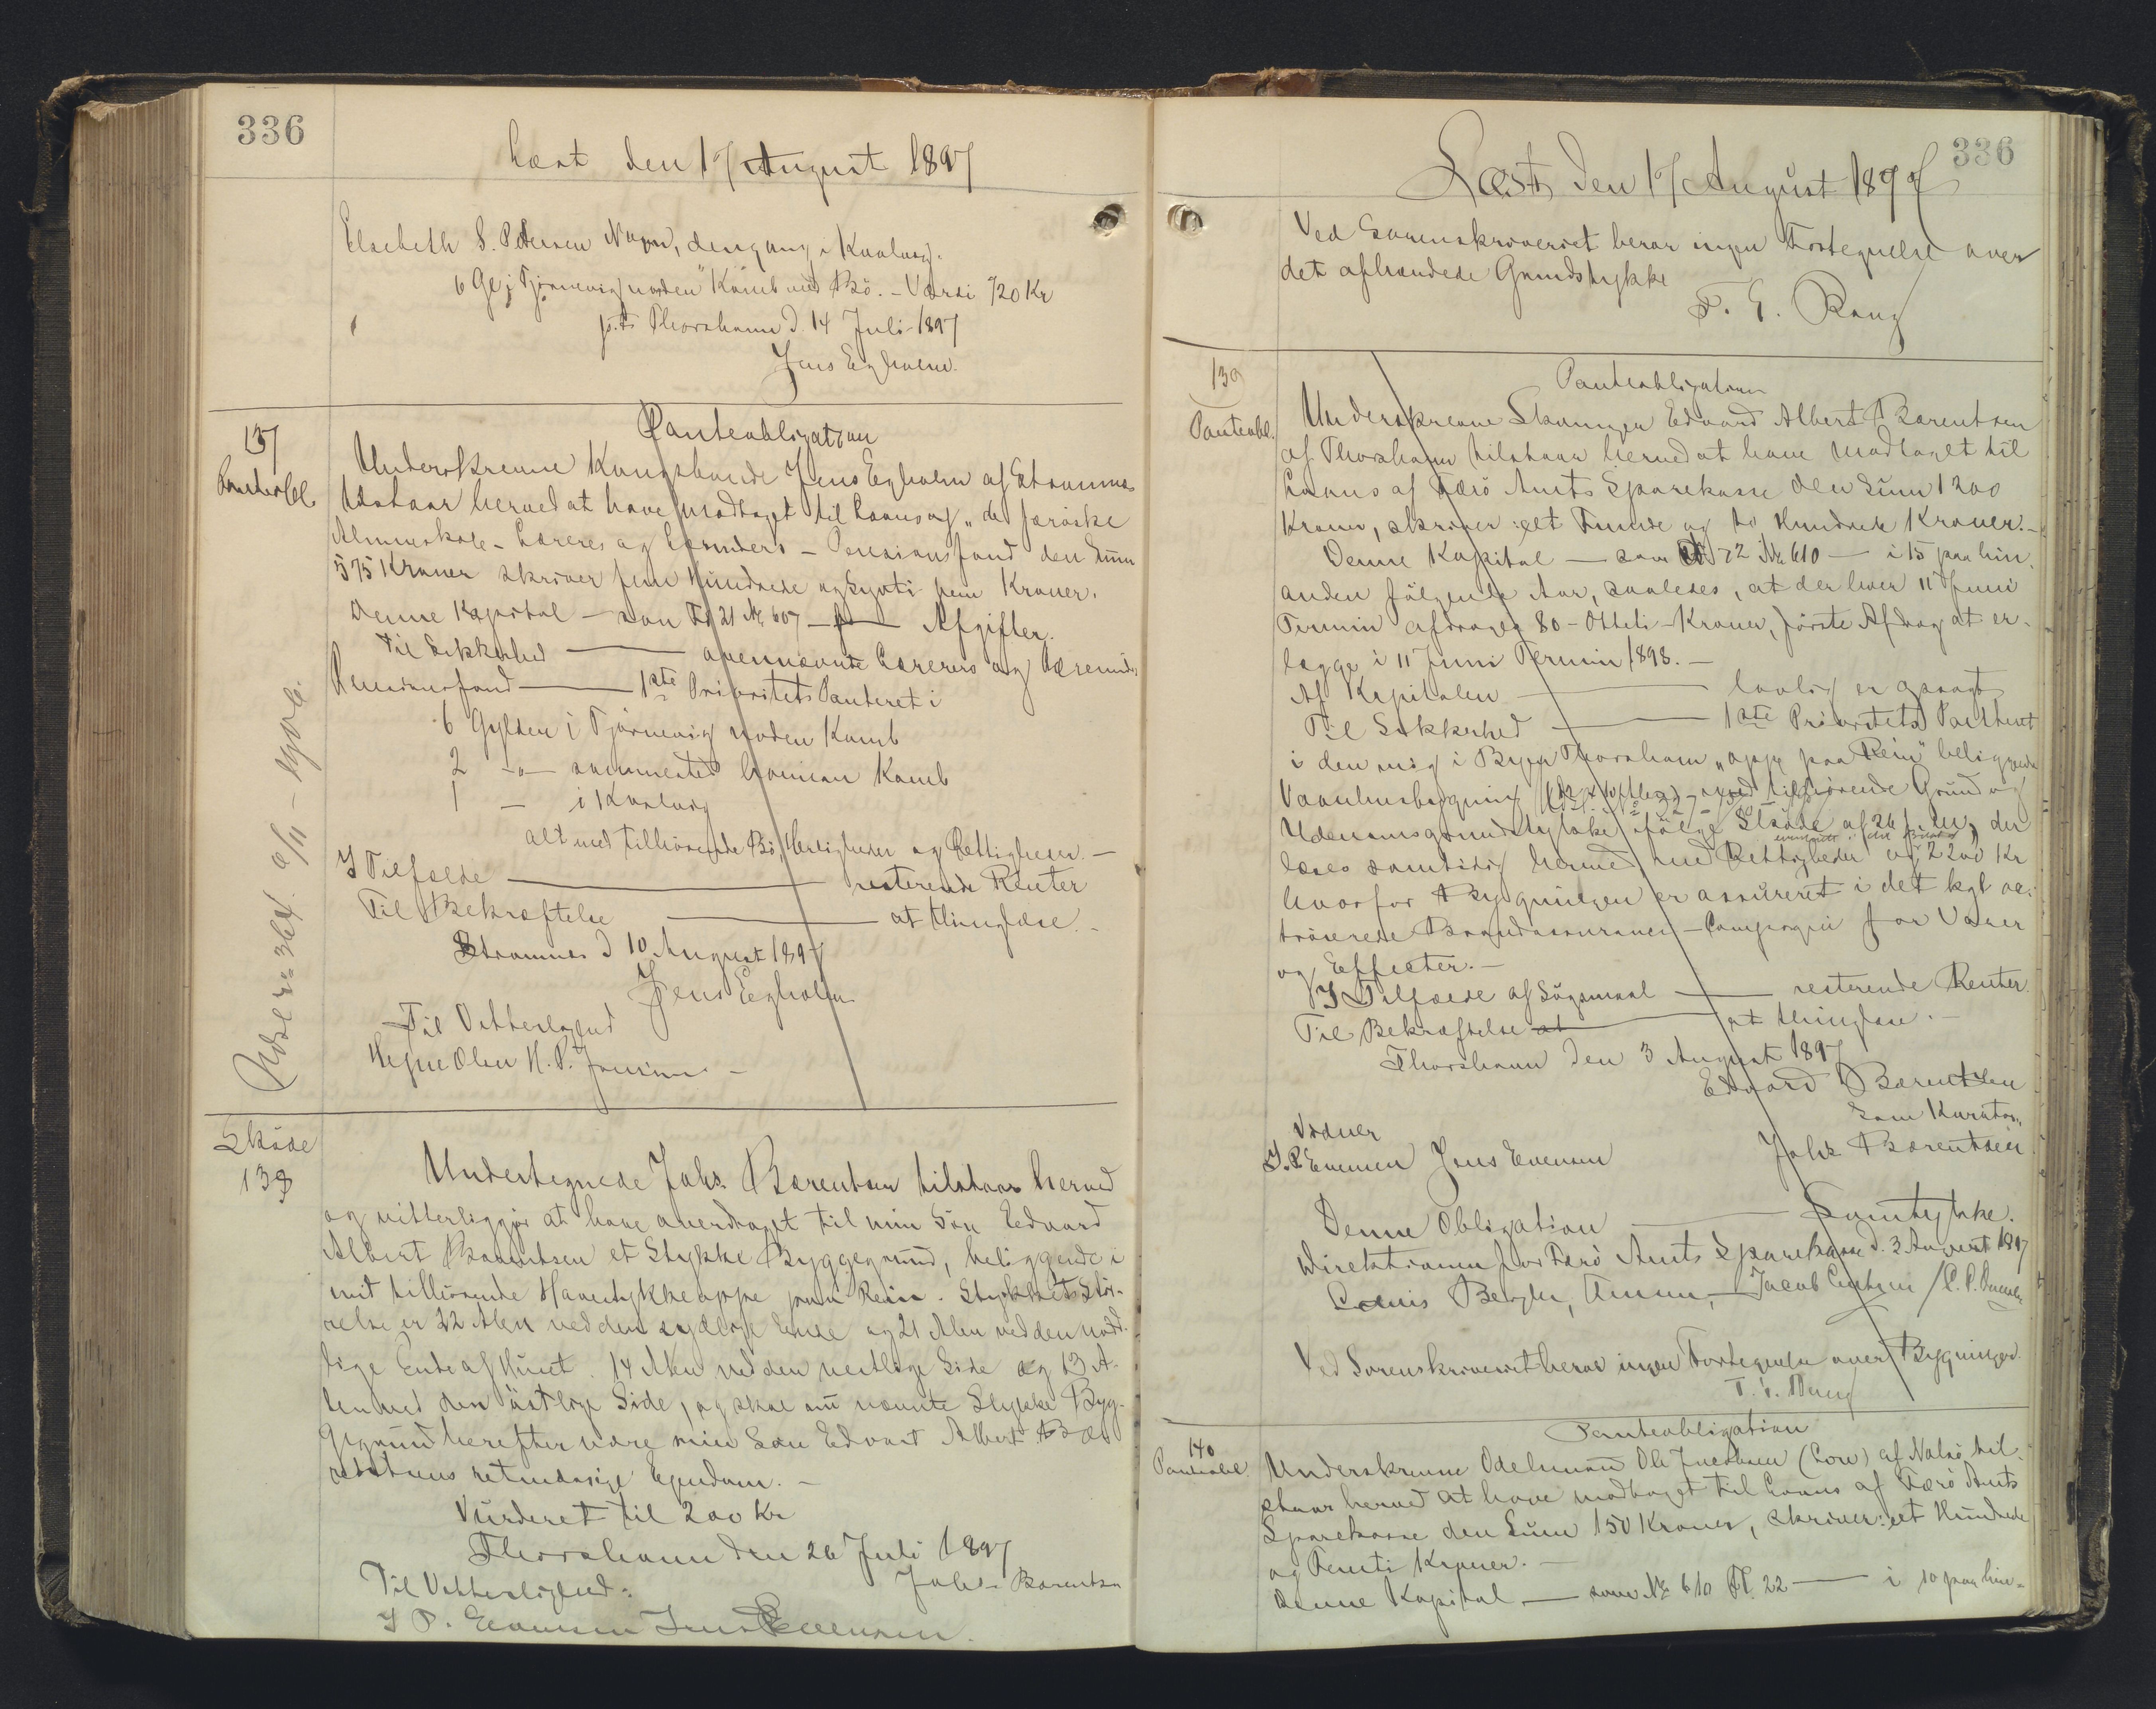 336
Læst den 17 August 1897
Elsebeth S. Petersen Navn, dengang i Kvalvig.
6 Gl i Tjörnevig norden Kamb med Bö. - Værdi 720 Kr
p.t. Thorshavn d. 14 Juli 1897
Jens Egholm.
137
Panteobl.
Panteobligation
Underskrevne Kongsbonde Jens Egholm af Strømnes
tilstaar herved at have modtaget til Laans af "de færöske
Almueskole-Læreres og Lærinders - Pensionsfond den Sum
575 Kroner skriver fem Hundrede og Syvti fem Kroner.
Denne Kapital - som Fo 21 No 607 - Afgifter.
Til Sikkerhed - ovennævnte Læreres og Lærerinders
Pensionsfond - 1ste Prioritets Panteret i
6 Gylden i Tjörnevig norden Kamb
2 -"- sammesteds Kamb
1 - i Kvalvig
alt med tilhörende Bö, Herligheder og Rettigheder. -
I Tilfælde - resterende Renter
Til Bekræftelse - at thinglæse. -
Strømnes d 10 August 1897
Jens Egholm
Til Vitterlighed
Olsen H. P.
Skøde
138
Undertegnede Johs. Barentsen tilstaar herved
og vitterliggjør at have overdraget til min Sön Edvard
Albert Barentsen et Stykke Byggegrund, beliggende i
mit tilhörende Havestykke oppe paa Rein. Stykkets Stör-
relse er 22 Alen ved den sydlige Ende og 21 Alen ved den nord-
lige Ende af Huset. 14 Alen ved den vestlige Side og 13 A-
len ved den östlige Side, og skal nu nævnte Stykke Byg-
gegrund herefter være min Sön Edvard Albert Ba-
rentsens retmæssige Ejendom. -
Vurderet til 200 Kr
Thorshavn den 26 Juli 1897
Johs. Barentsen
Til Vitterlighed:
J P. Evensen Jens Evensen.
336
Læst den 17 August 1897
Ved Sorenskriveriet beror ingen Fortegnelse over
det afhændede Grundstykke
139
Panteobl.
Panteobligation
Underskrevne Edvard Albert Barentsen
af Thorshavn tilstaar herved at have modtaget til
Laans af Færö Amts Sparekasse den Sum 1200
Kroner, skriver: et Tusinde og to Hundrede Kroner. -
Denne Kapital - som Fo 22 No 610 - i 15 paa hin-
anden fölgende Aar, saaledes, at der hver 11 Juni
Termin afdrages 80 - Otteti - Kroner, förste Afdrag at er-
lægge i 11 Juni Termin 1898. -
Af Kapitalen - lovlig er opsagt
Til Sikkerhed - 1ste Prioritets Panteret
i den mig i Byen Thorshavn "oppe paa Rein" beliggende
Vaaningsbygning med tilhörende Grund og
Udenomsgrundstykke ifölge Sköde af 26 der
læses samtidig hermed med Rettigheder og 2200 Kr
hvorfor Bygningen er assureret i det kgl oc-
troierede Brandassurance-Compagni for Varer
og Effecter. -
I Tilfælde af Sögsmaal - resterende Renter.
Til Bekræftelse at - at thinglæse. -
Thorshavn den 3 August 1897
Edvard Barentsen
Som Kurator
Johs Barentsen
Vidner
J. P Evensen Jens Evensen
Denne Obligation - Samtykke.
Direktionen for Færö Amts Sparekasse d. 3 August 1897
Ved Sorenskriveriet beror ingen Fortegnelse over Bygninger
140
Panteobl.
Panteobligation
Underskrevne Odelsmand Ole Jacobsen af Nolsö til-
staar herved at have modtaget til Laans af Færö Amts
Sparekasse den Sum 150 Kroner, skriver: et Hundrede
og Femti Kroner. -
Denne Kapital - som No 610 Fl. 22 - i 10 paa hin-